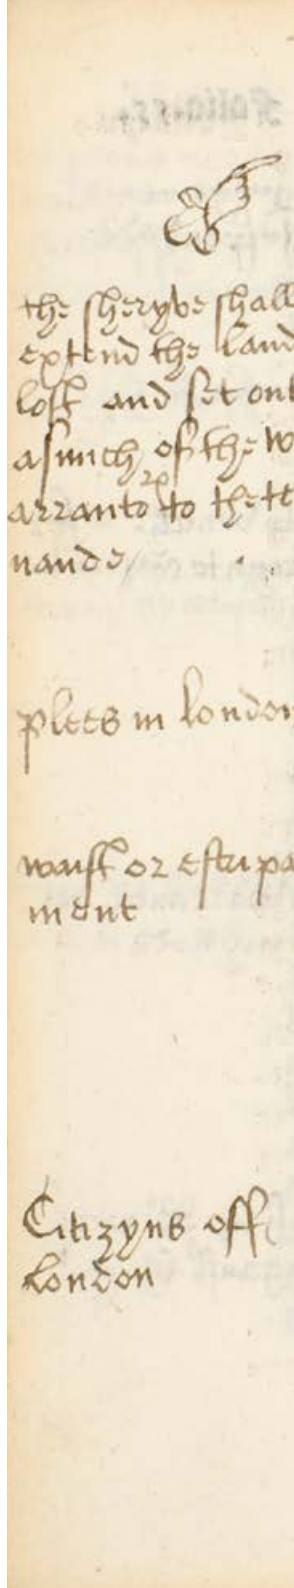 the sheryve shall
extend the land
lost and set out
as much of the w
arrant to the te
nande
plees in london
waist or estripa
ment
Citizyns off
london